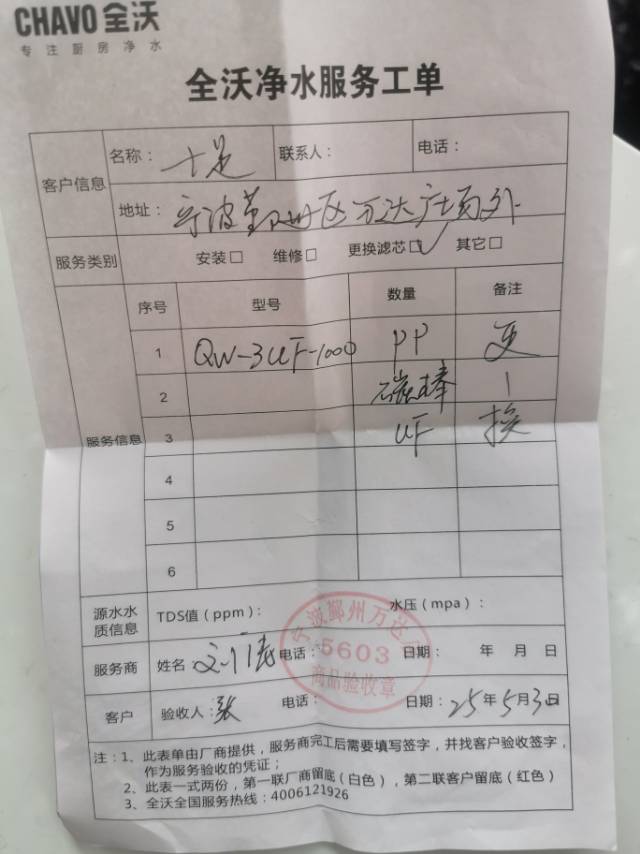 CHAVO 全沃
专注厨房净水
全沃净水服务工单
客户信息 名称：十足 联系人： 电话：
地址：宁波鄞州区万达广场外
服务类别 安装□ 维修□ 更换滤芯□✓ 其它□
服务信息 序号 型号 数量 备注
1 QW-3UF-1000 PP 更
2 碳棒 |
3 UF 换
4
5
6
源水水质信息 TDS值（ppm）： 水压（mpa）：
宁波鄞州万达
5603
商品验收章
服务商 姓名 电话： 日期： 年 月 日
客户 验收人：张 电话： 日期：25年5月3日
注：1、此表单由厂商提供，服务商完工后需要填写签字，并找客户验收签字，
作为服务验收的凭证；
2、此表一式两份，第一联厂商留底（白色），第二联客户留底（红色）
3、全沃全国服务热线：4006121926